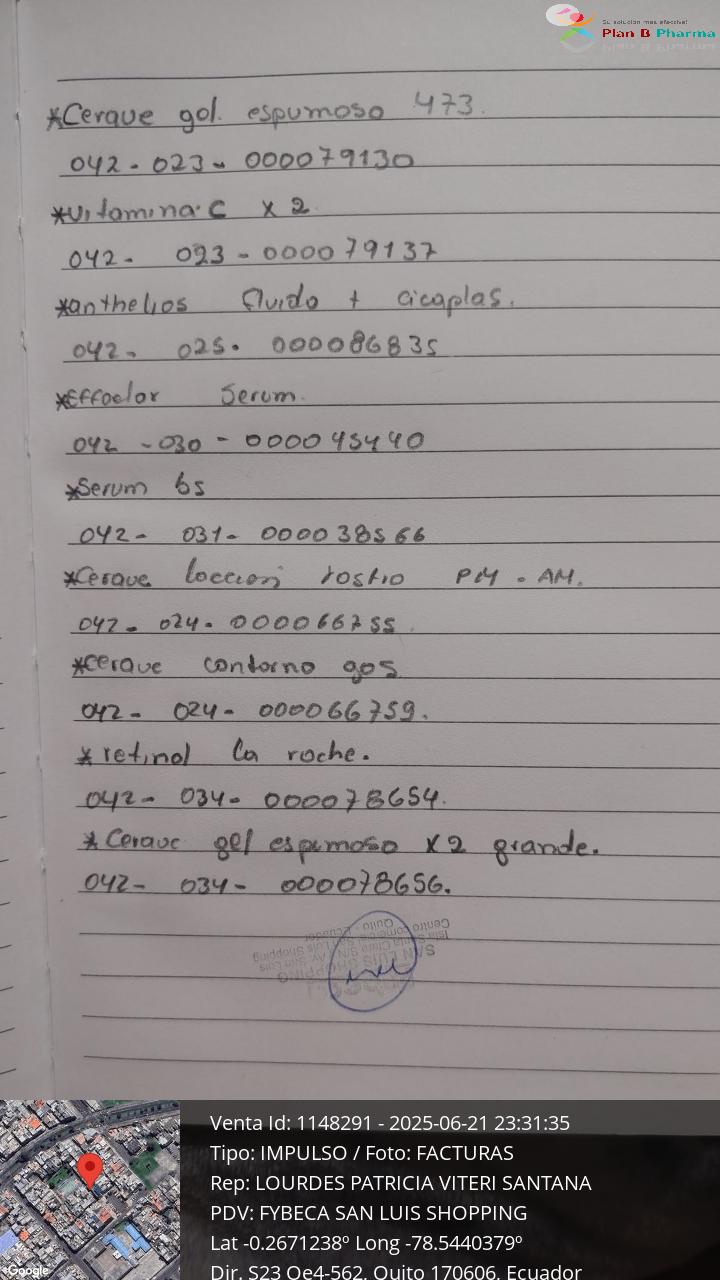 Su solucion mas efectiva!
Plan B Pharma
*Cerave gol. espumoso 473.
042 - 023 - 000079130
*Vitamina C x 2
042 - 023 - 000079137
*anthelios fluido + cicaplas.
042 - 025 - 000086835
*Effaclar Serum.
042 - 030 - 000045440
*Serum b5
042 - 031 - 000038566
*Cerave loccion rostro PM - AM.
042 - 024 - 000066755
*Cerave contorno gos
042 - 024 - 000066759.
*retinol la roche.
042 - 034 - 000078654.
*Cerave gel espumoso x2 grande.
042 - 034 - 000078656.
SAN LUIS SHOPPING
Centro Comercial San Luis Shopping
Quito - Ecuador
Venta Id: 1148291 - 2025-06-21 23:31:35
Tipo: IMPULSO / Foto: FACTURAS
Rep: LOURDES PATRICIA VITERI SANTANA
PDV: FYBECA SAN LUIS SHOPPING
Lat -0.2671238º Long -78.5440379º
Dir. S23 Oe4-562, Quito 170606, Ecuador
Google